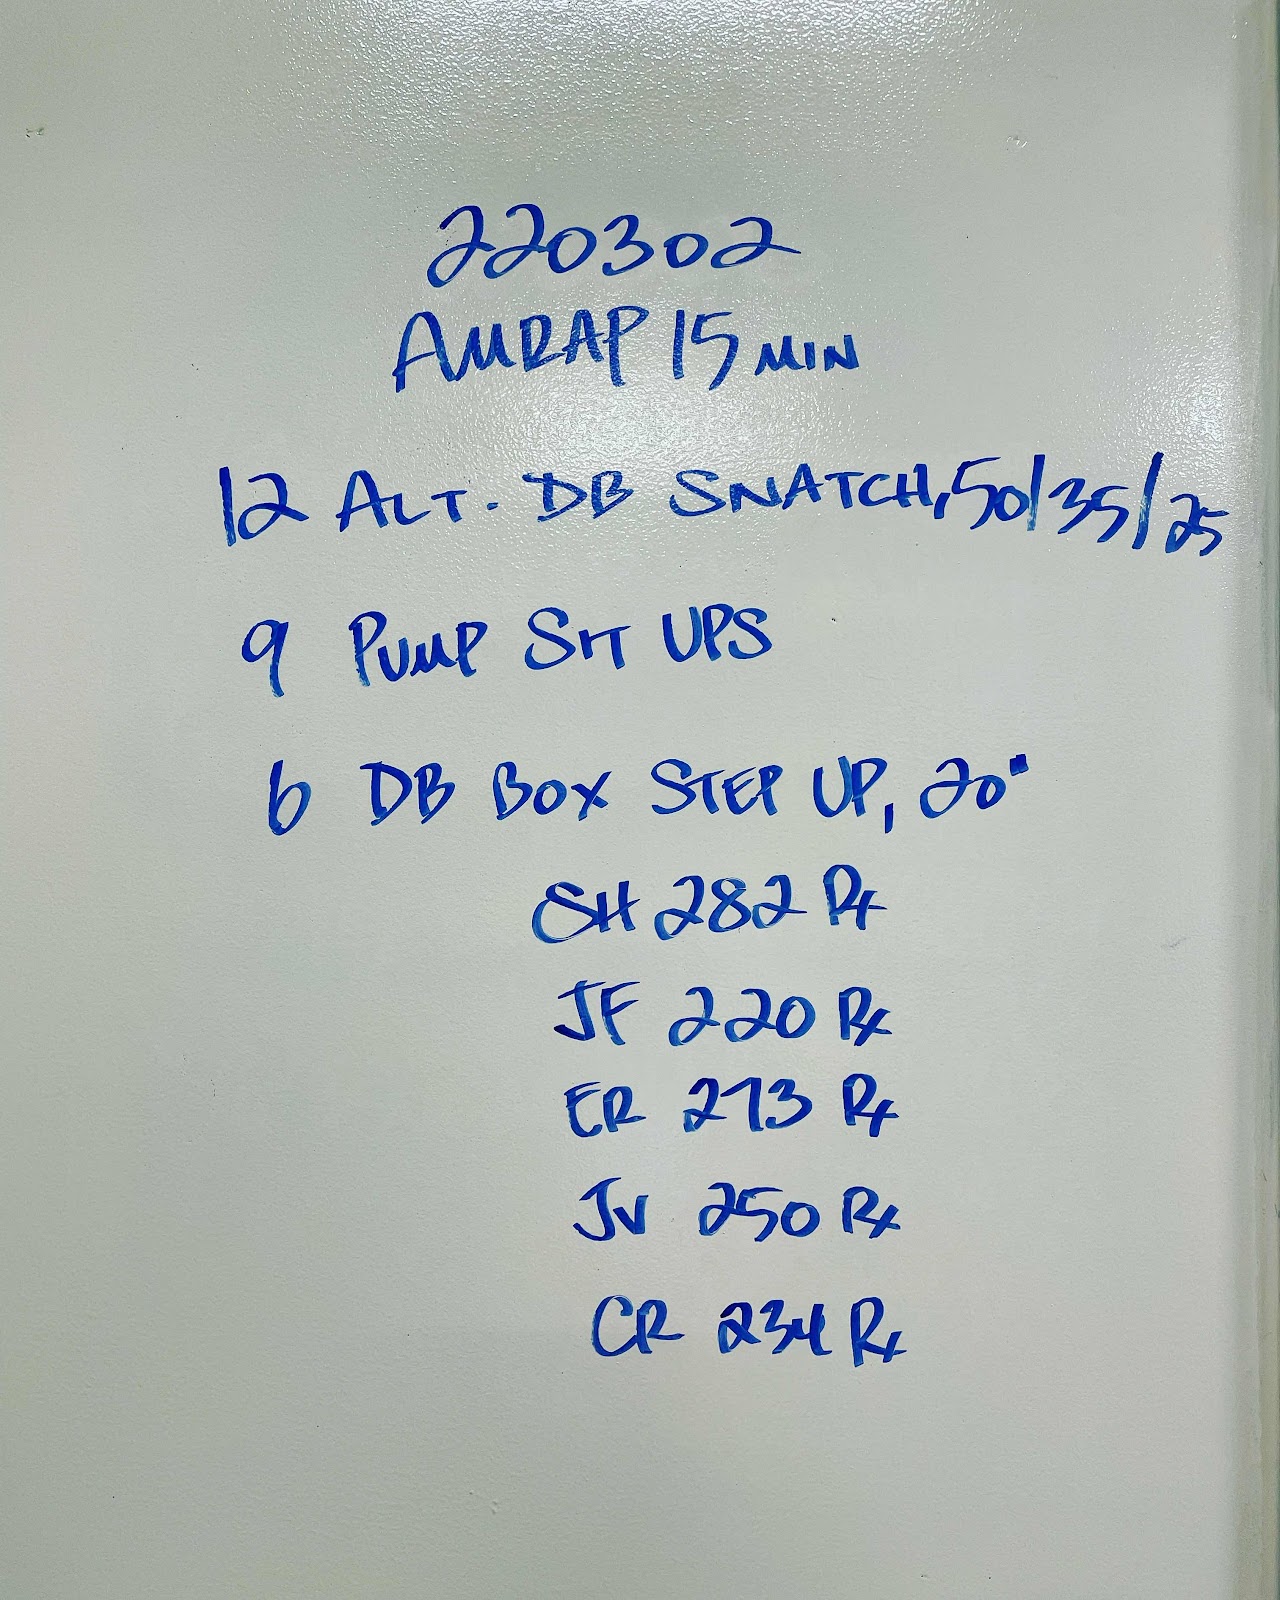 220302
AMRAP 15 MIN
12 ALT. DB SNATCH, 50/35/25
9 PUMP SIT UPS
6 DB BOX STEP UP, 20"
SH 282 Rx
JF 220 Rx
ER 273 Rx
JV 250 Rx
CR 234 Rx